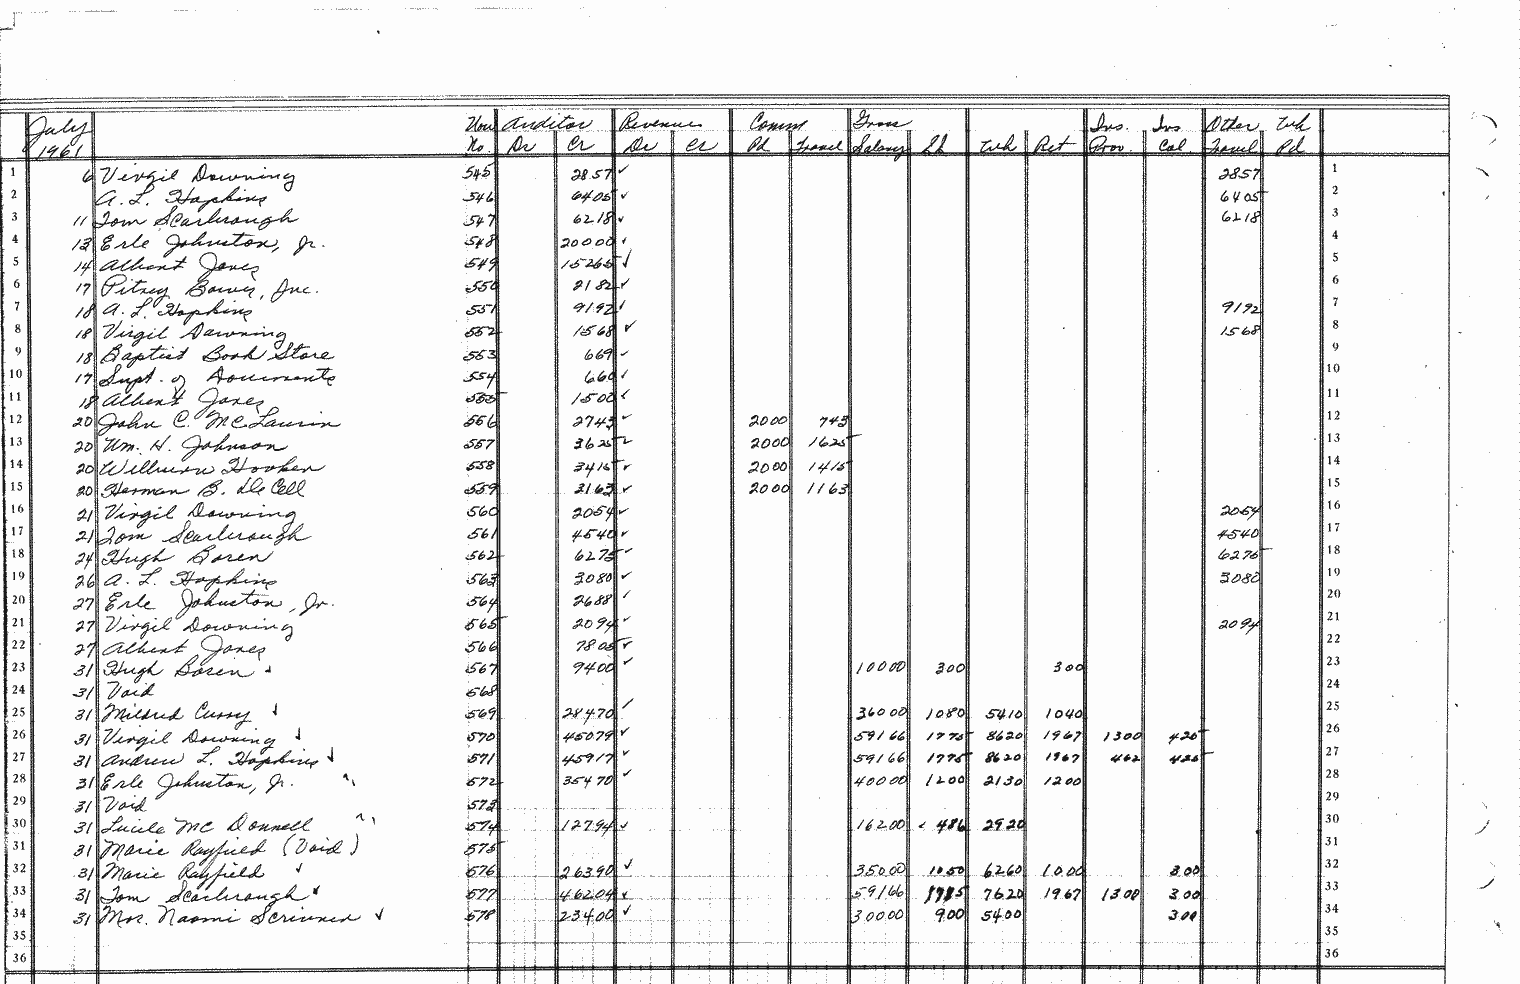 July Vou Auditor Revenues Comm Gross Ins. Ins Other Wh
1961 No. Dr Cr Dr Cr Pd Travel Salary Wh Ret Prov. Col. Travel Pd
1 6 Virgil Downing 545 2857 ✓ 2857 1
2 A. L. Hopkins 546 6405 ✓ 6405 2
3 11 Tom Scarbrough 547 6218 ✓ 6218 3
4 13 Erle Johnston, Jr. 548 20000 ✓ 4
5 14 Albert Jones 549 15265 ✓ 5
6 17 Pitney Bowes, Inc. 550 2182 ✓ 6
7 18 A. L. Hopkins 551 9192 ✓ 9192 7
8 18 Virgil Downing 552 1568 ✓ 1568 8
9 18 Baptist Book Store 553 669 ✓ 9
10 17 Supt. of Documents 554 660 ✓ 10
11 18 Albert Jones 555 1500 ✓ 11
12 20 John C. McLaurin 556 2743 ✓ 2000 743 12
13 20 Wm. H. Johnson 557 3625 ✓ 2000 1625 13
14 20 Wilburn Hooker 558 3415 ✓ 2000 1415 14
15 20 Herman B. DeCell 559 3163 ✓ 2000 1163 15
16 21 Virgil Downing 560 2054 ✓ 2054 16
17 21 Tom Scarbrough 561 4540 ✓ 4540 17
18 24 Hugh Boren 562 6275 ✓ 6275 18
19 26 A. L. Hopkins 563 3080 ✓ 3080 19
20 27 Erle Johnston, Jr. 564 2688 ✓ 20
21 27 Virgil Downing 565 2094 ✓ 2094 21
22 27 Albert Jones 566 7805 ✓ 22
23 31 Hugh Boren ✓ 567 9400 ✓ 10000 300 300 23
24 31 Void 568 24
25 31 Mildred Curry ✓ 569 28470 ✓ 36000 1080 5410 1040 25
26 31 Virgil Downing ✓ 570 45079 ✓ 59166 1775 8620 1967 1300 425 26
27 31 Andrew L. Hopkins ✓ 571 45917 ✓ 59166 1775 8620 1967 462 425 27
28 31 Erle Johnston, Jr. 572 35470 ✓ 40000 1200 2130 1200 28
29 31 Void 573 29
30 31 Lucile McDonnell 574 12794 ✓ 16200 486 2920 30
31 31 Marie Rayfield (Void) 575 31
32 31 Marie Rayfield ✓ 576 26390 ✓ 35000 1050 6260 1000 300 32
33 31 Tom Scarbrough ✓ 577 46204 ✓ 59166 1775 7620 1967 1300 300 33
34 31 Mrs. Naomi Scrivner ✓ 578 23400 ✓ 30000 900 5400 300 34
35 35
36 36